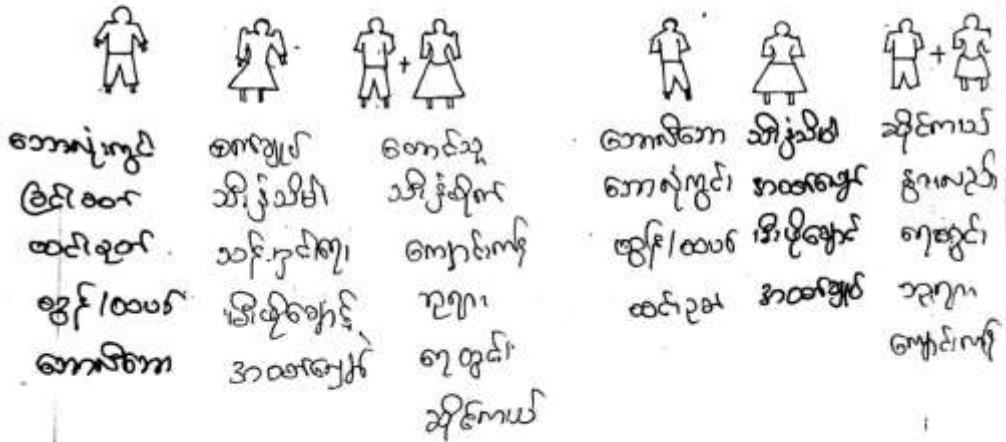 ဘောလုံးကွင်း
ခြင်းခတ်
ထင်းခုတ်
ထွန်/ထယ်
ဘောလီဘော
စက်ချုပ်
သီးနှံသိမ်း
သန့်ရှင်းရေး
မီးဖိုချောင်
အထည်
တောင်သူ
သီးနှံစိုက်
ကျောင်းကန်
ဘုရား
ရေတွင်း
ဆိုင်ကယ်
ဘောလီဘော
ဘောလုံးကွင်း
ထွန်/ထယ်
ထင်းခုတ်
သီးနှံသိမ်း
မီးဖိုချောင်
အထည်ချုပ်
ဆိုင်ကယ်
နွားလှည်း
ရေတွင်း
ဘုရား
ကျောင်းကန်